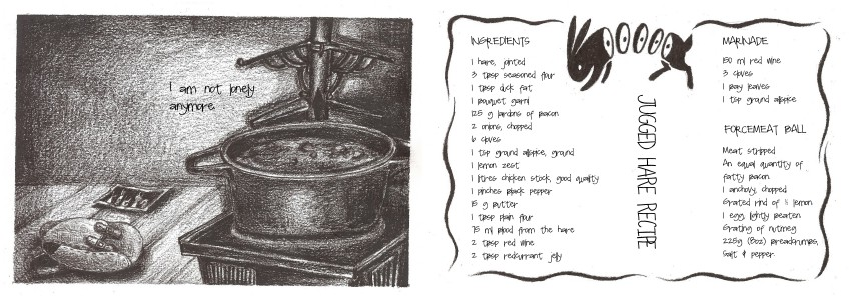 I am not lonely
anymore.
INGREDIENTS
1 hare, jointed
3 tbsp seasoned flour
1 tbsp duck fat
1 bouquet garni
125 g lardons of bacon
2 onions, chopped
6 cloves
1 tsp ground allspice, ground
1 lemon zest
1 litres chicken stock, good quality
1 pinches black pepper
15 g butter
1 tbsp plain flour
75 ml blood from the hare
2 tbsp red wine
2 tbsp redcurrant jelly
JUGGED HARE RECIPE
MARINADE
150 ml red wine
3 cloves
1 bay leaves
1 tsp ground allspice
FORCEMEAT BALL
Meat stripped
An equal quantity of
fatty bacon
1 anchovy, chopped
Grated rind of ½ lemon
1 egg, lightly beaten
Grating of nutmeg
225g (8oz) breadcrumbs,
Salt & pepper